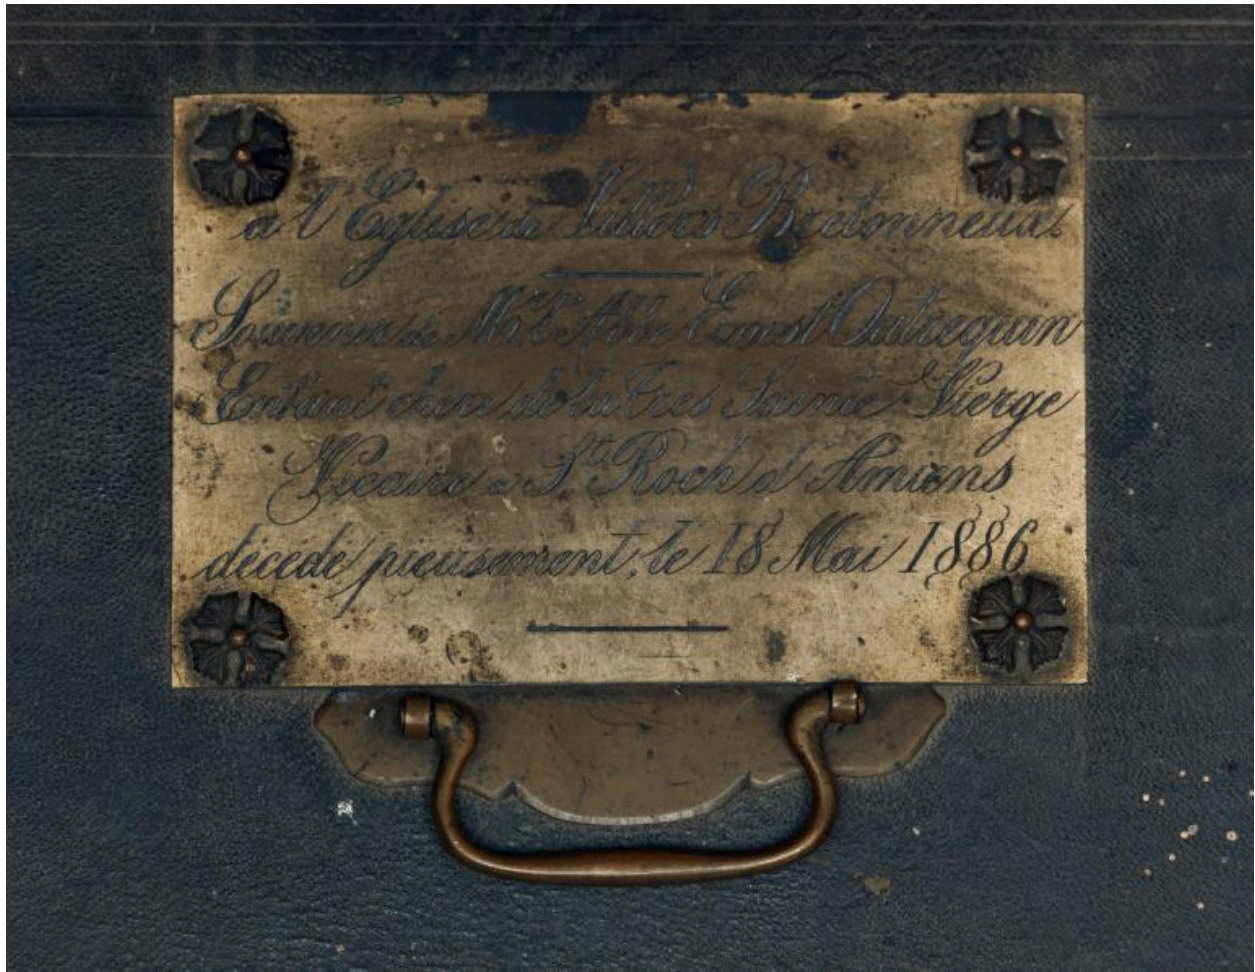 a l'Eglise de Villers-Bretonneux
Souvenir de Mr l'Abbé Ernest Outrequin
Enfant cheri de la Tres Sainte Vierge
Vicaire a St Roch d'Amiens
décédé pieusement, le 18 Mai 1886